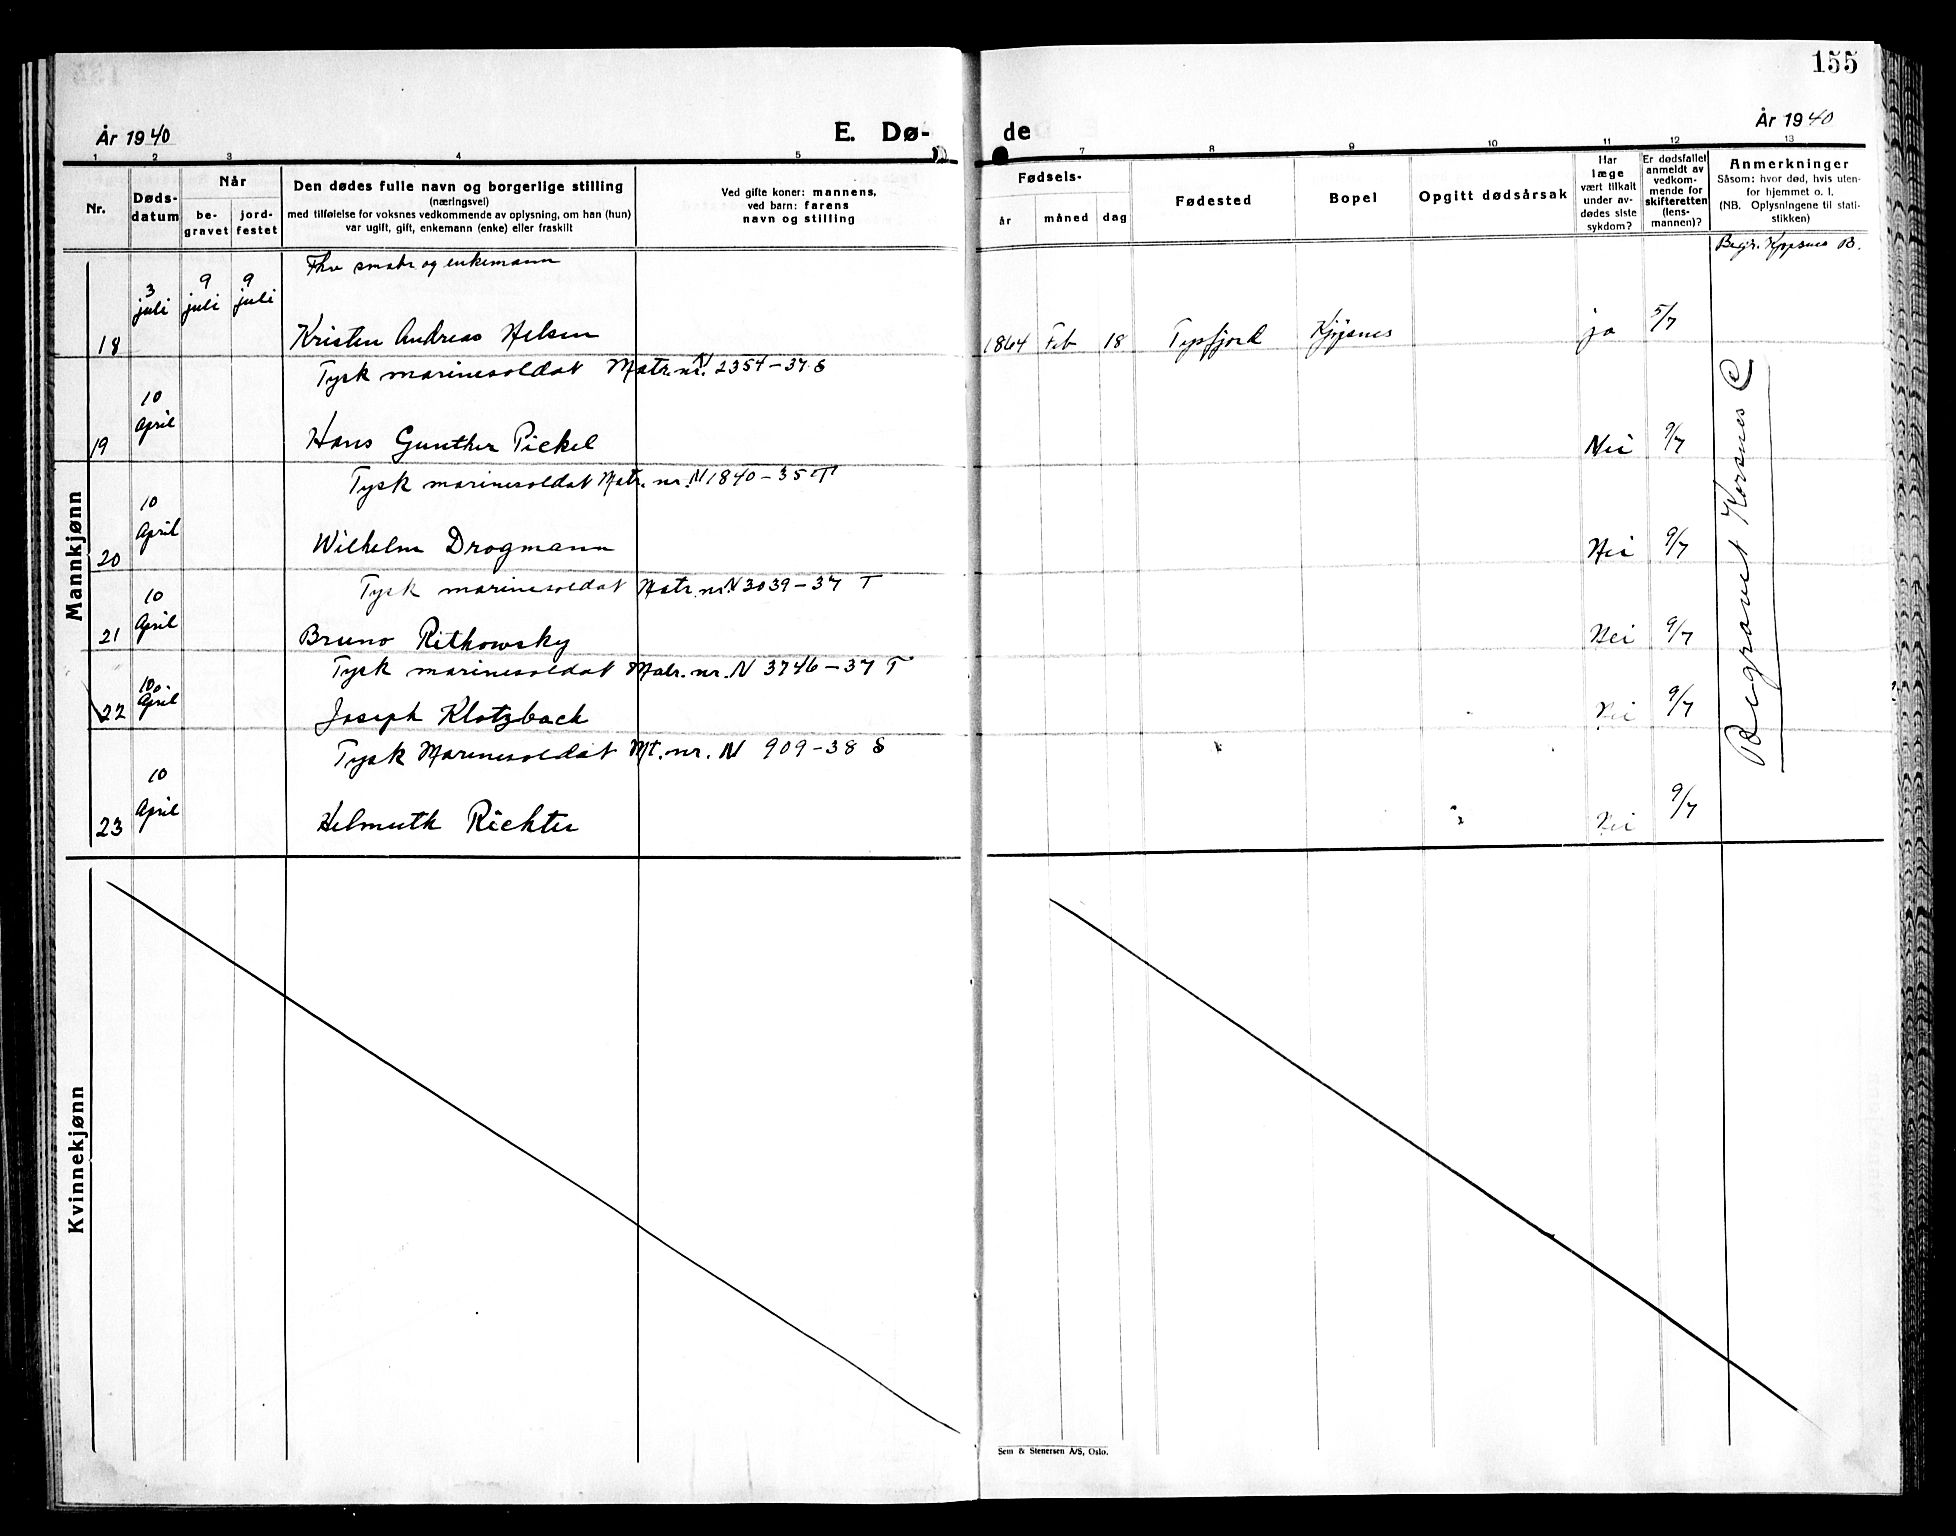 155
År 1940
E. Dø-
de
År 1940
1 2 3 4 5 7 8 9 10 11 12 13
Nr.
Døds-
datum
Når
be-
gravet
jord-
festet
Den dødes fulle navn og borgerlige stilling
(næringsvei)
med tilføielse for voksnes vedkommende av oplysning, om han (hun)
var ugift, gift, enkemann (enke) eller fraskilt
Ved gifte koner: mannens,
ved barn: farens
navn og stilling
Fødsels-
år måned dag
Fødested
Bopel
Opgitt dødsårsak
Har
læge
vært tilkalt
under av-
dødes siste
sykdom?
Er dødsfallet
anmeldt av
vedkom-
mende for
skifteretten
(lens-
mannen)?
Anmerkninger
Såsom: hvor død, hvis uten-
for hjemmet o. l.
(NB. Oplysningene til stati-
stikken)
Mannkjønn
og enkemann
18 3 juli 9 juli 9 juli Kristen Andreas 1864 Feb 18 ja 5/7
Tysk marinesoldat Matr.nr. N 2354-37 S
19 10 April Hans Gunther Pickel Nei 9/7
Tysk marinesoldat Matr. nr. N 1840-35 T
20 10 April Wilhelm Drogmann Nei 9/7
Tysk marinesoldat Matr.nr. N 3039-37 T
21 10 April Bruno Ritkowsky Nei 9/7
Tysk marinesoldat Matr.nr. N 3746-37 T
22 10 April Joseph Klotzbach Nei 9/7
Tysk Marinesoldat Mt.nr. N 909-38 S
23 10 April Helmuth Richter Nei 9/7
Begravet Korsnes C
Kvinnekjønn
Sem & Stenersen A/S, Oslo.